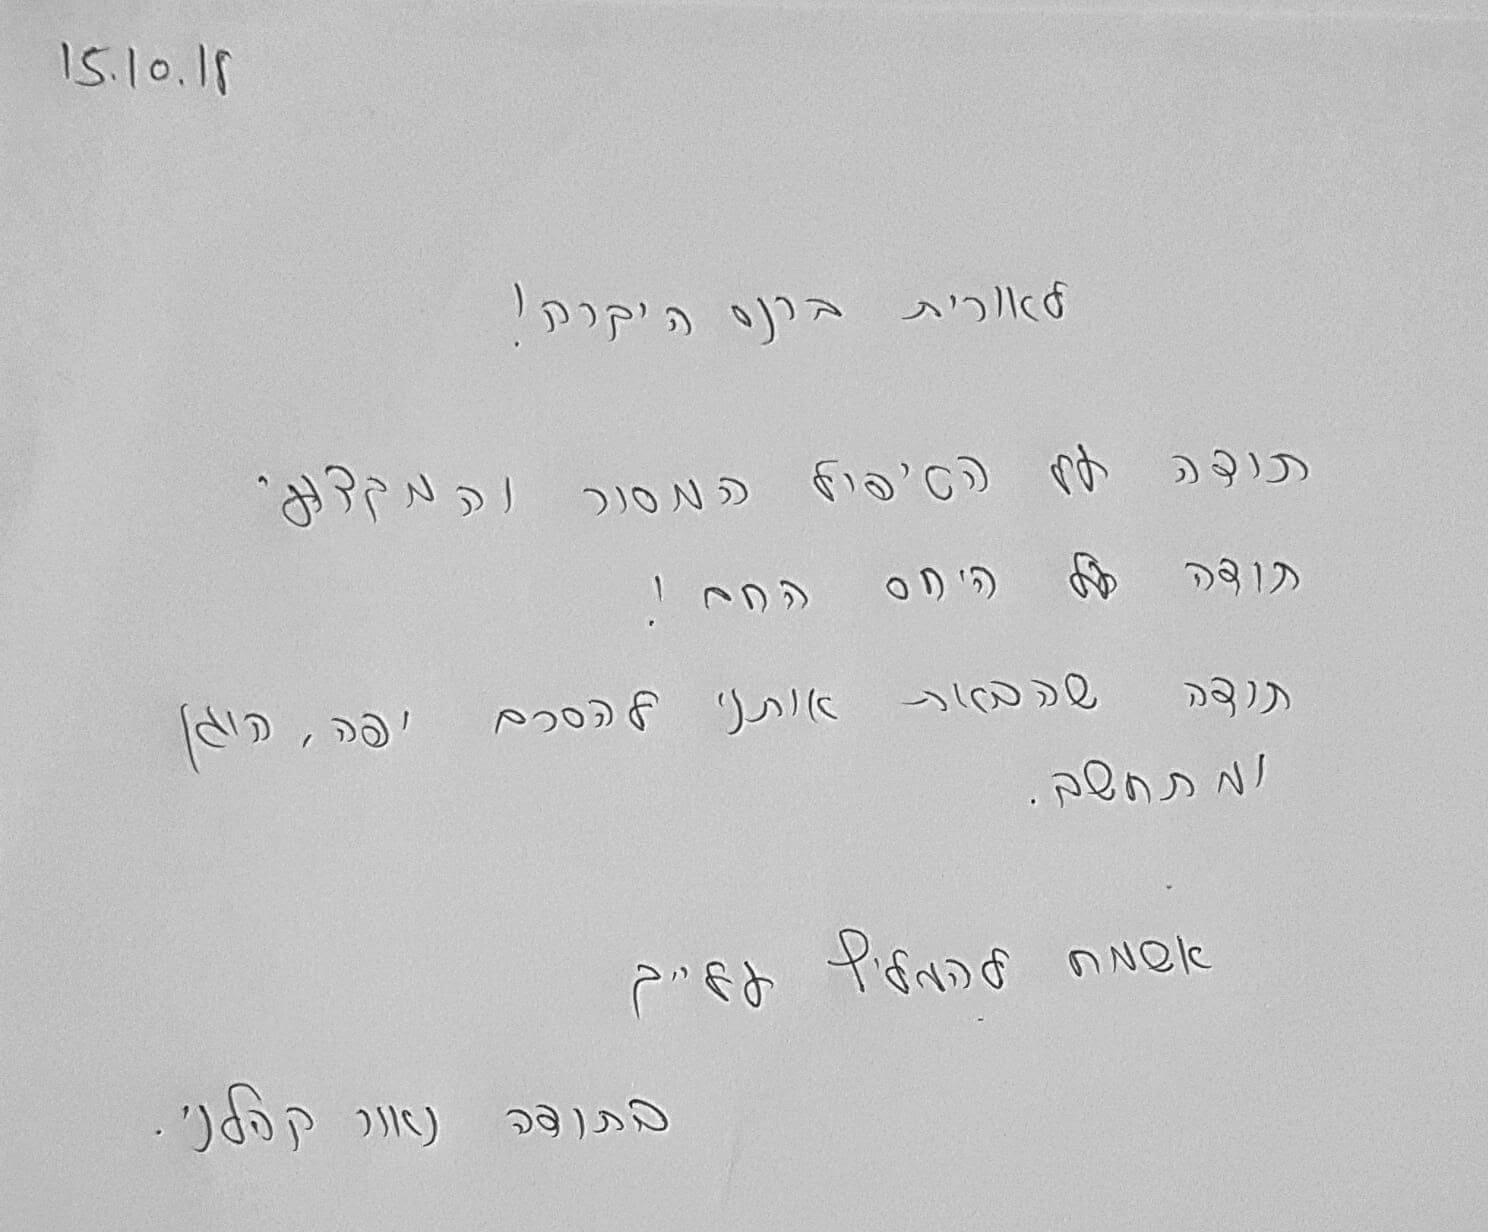 15.10.18
לאורית ברנס היקרה!
תודה על הטיפול המסור והמקצועי
תודה על היחס החם!
תודה שהבאת אותני להסכם יפה, הוגן
ומתחשב.
אשמח להמליץ עלייך
בתודה נאור קהלני.